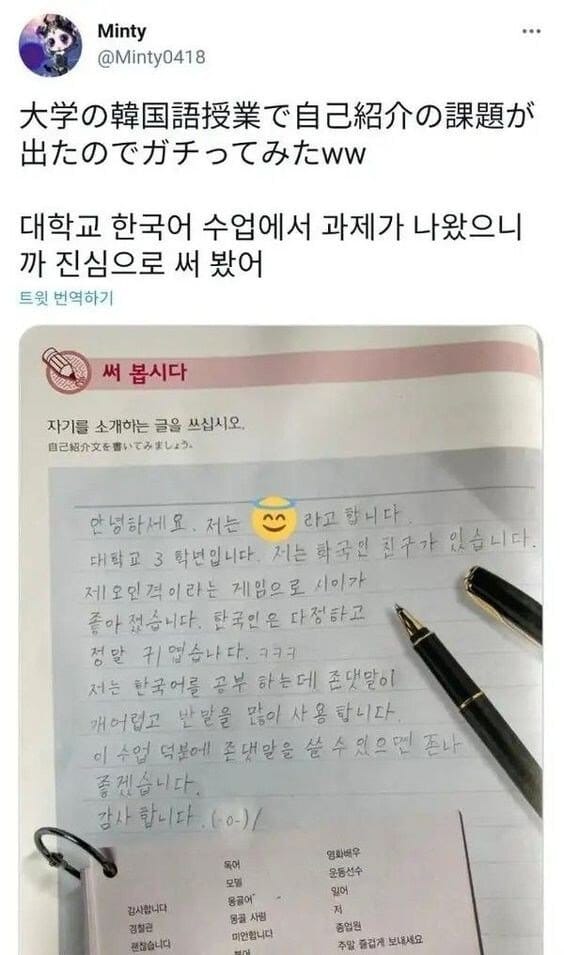 Minty
@Minty0418
大学の韓国語授業で自己紹介の課題が
出たのでガチってみたww
대학교 한국어 수업에서 과제가 나왔으니
까 진심으로 써 봤어
트윗 번역하기
써 봅시다
자기를 소개하는 글을 쓰십시오.
自己紹介文を書いてみましょう。
안녕하세요. 저는 😇 라고 합니다.
대학교 3 학년입니다. 저는 화국인 친구가 있습니다.
제오인격이라는 게임으로 시이가
좋아졌습니다. 한국인은 다정하고
정말 귀엽습나다. ㅋㅋㅋ
저는 한국어를 공부 하는데 존댓말이
개어렵고 반말을 많이 사용 합니다.
이 수업 덕분에 존댓말을 쓸 수 있으면 존나
좋겠습니다.
감사 합니다. (-o-)/
독어
영화배우
모델
운동선수
감사합니다
몽골어
일어
경찰관
몽골 사람
저
괜찮습니다
미안합니다
종업원
주말 즐겁게 보내세요